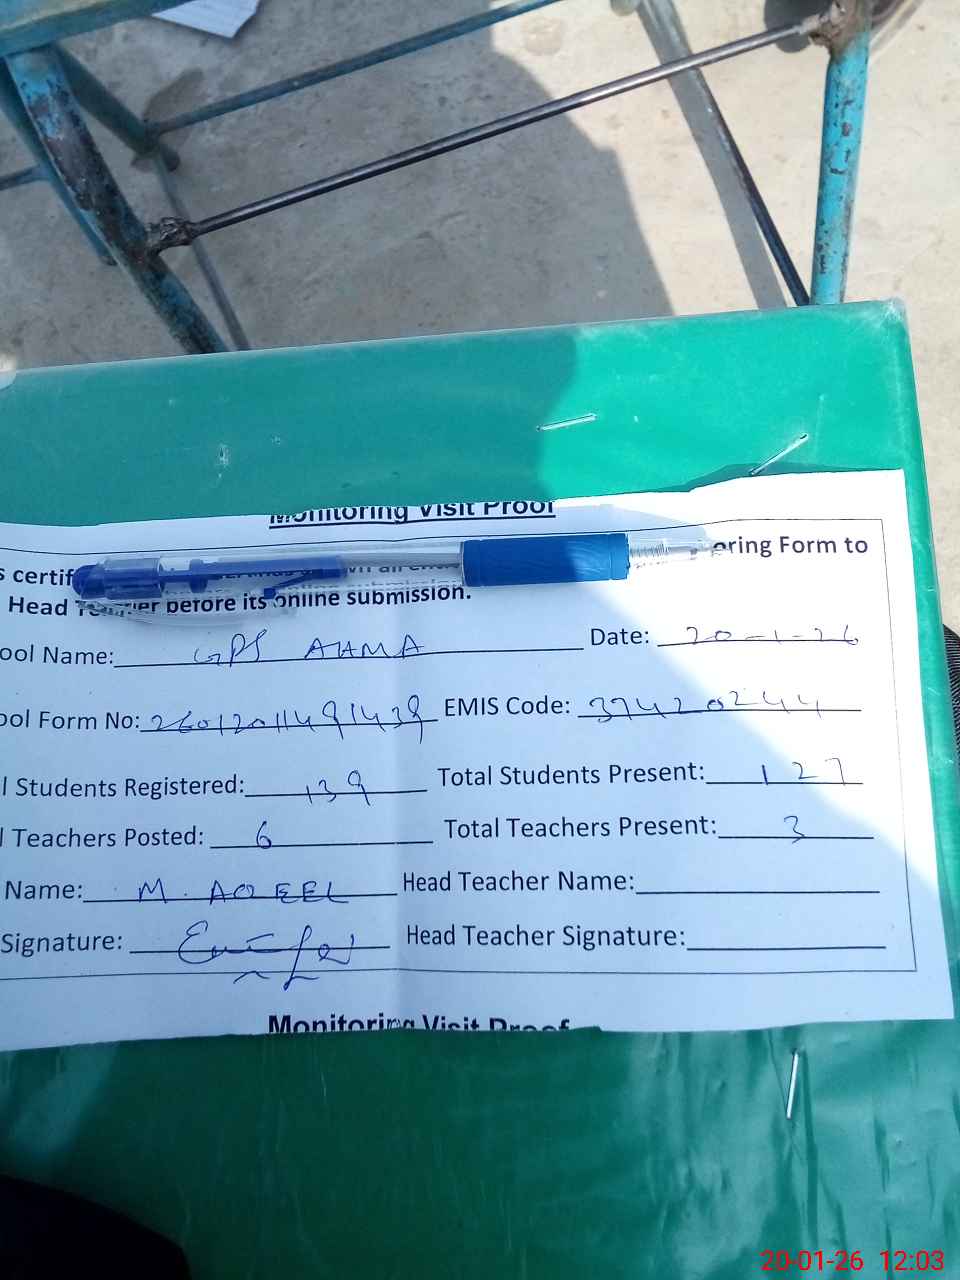 Monitoring Visit Proof
oring Form to
s certif
Head Teacher before its online submission.
ool Name: GPS AHMA Date: 20-1-26
ool Form No: 26012011491439 EMIS Code: 37420244
l Students Registered: 139 Total Students Present: 127
l Teachers Posted: 6 Total Teachers Present: 3
Name: M. AQEEL Head Teacher Name:
Signature: Head Teacher Signature:
Monitoring Visit Proof
20-01-26 12:03